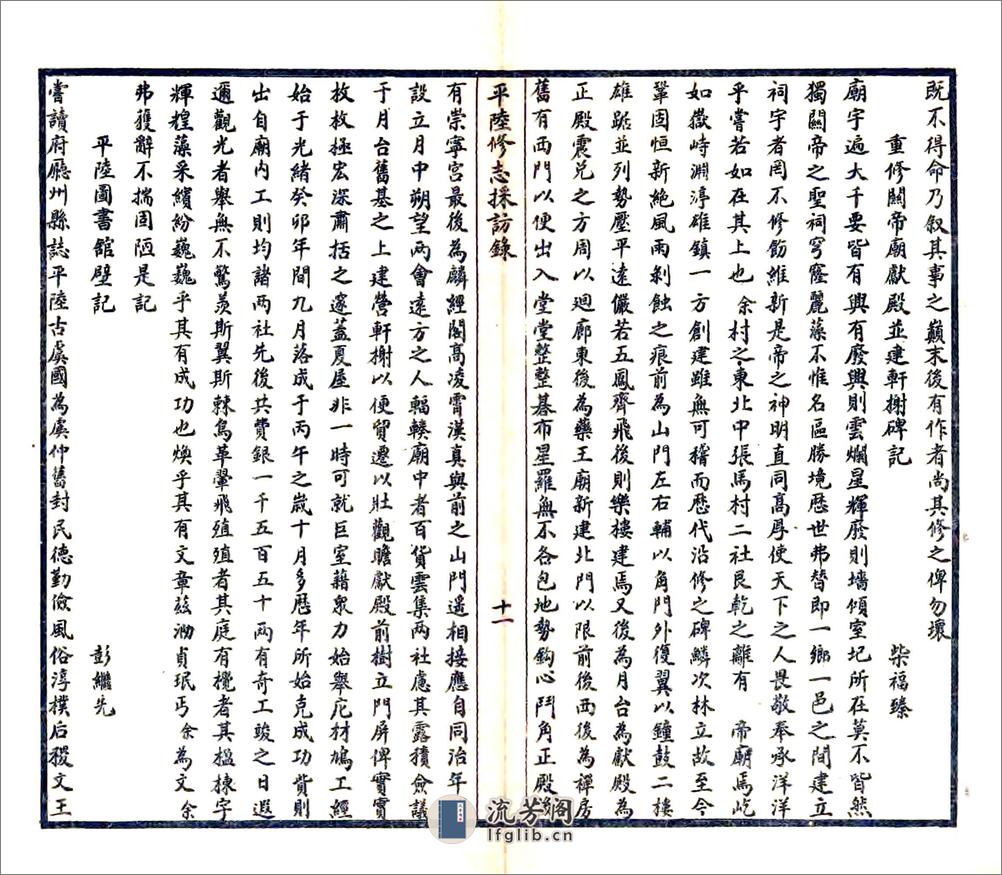 既不得命乃叙其事之巔末後有作者尚其修之俾勿壞
重修關帝廟獻殿並建軒榭碑記 柴福臻
廟宇遍大千要皆有興有廢興則雲爛星輝廢則墻傾室圮所在莫不皆然
獨關帝之聖祠穹窿麗藻不惟名區勝境歷世弗替即一鄉一邑之間建立
祠宇者罔不修飭維新是帝之神明直同高厚使天下之人畏敬奉承洋洋
乎嘗若如在其上也余村之東北中張馬村二社艮乾之離有 帝廟焉屹
如嶽峙淵渟雄鎮一方創建雖無可稽而歷代沿修之碑鱗次林立故至今
鞏固恒新絶風雨剝蝕之痕前為山門左右輔以角門外復翼以鐘鼓二樓
雄踞並列勢壓平遠儼若五鳳齊飛後則樂樓建焉又後為月台為獻殿為
正殿震兌之方周以迴廊東後為藥王廟新建北門以限前後西後為禪房
舊有西門以便出入堂堂整整碁布星羅無不各包地勢鈎心鬥角正殿後
平陸修志採訪錄 十一
有崇寧宮最後為麟經閣高凌霄漢真與前之山門遥相接應自同治年間
設立月中朔望兩會遠方之人輻輳廟中者百貨雲集兩社慮其露積僉議
于月台舊基之上建營軒榭以便貿遷以壯觀瞻獻殿前樹立門屏俾實實
枚枚極宏深肅括之邃蓋夏屋非一時可就巨室藉衆力始舉庀材鳩工經
始于光緒癸卯年間九月落成于丙午之歲十月多歷年所始克成功貲則
出自廟内工則均諸兩社先後共費銀一千五百五十兩有奇工竣之日遐
邇觀光者舉無不驚羨斯翼斯棘鳥革翬飛殖殖者其庭有攪者其楹棟宇
輝煌藻采繽紛巍巍乎其有成功也煥乎其有文章茲泐貞珉丐余為文余
弗獲辭不揣固陋是記
平陸圖書館壁記 彭繼先
嘗讀府廳州縣誌平陸古虞國為虞仲舊封民德勤儉風俗淳樸后稷文王
流芳閣
lfglib.cn